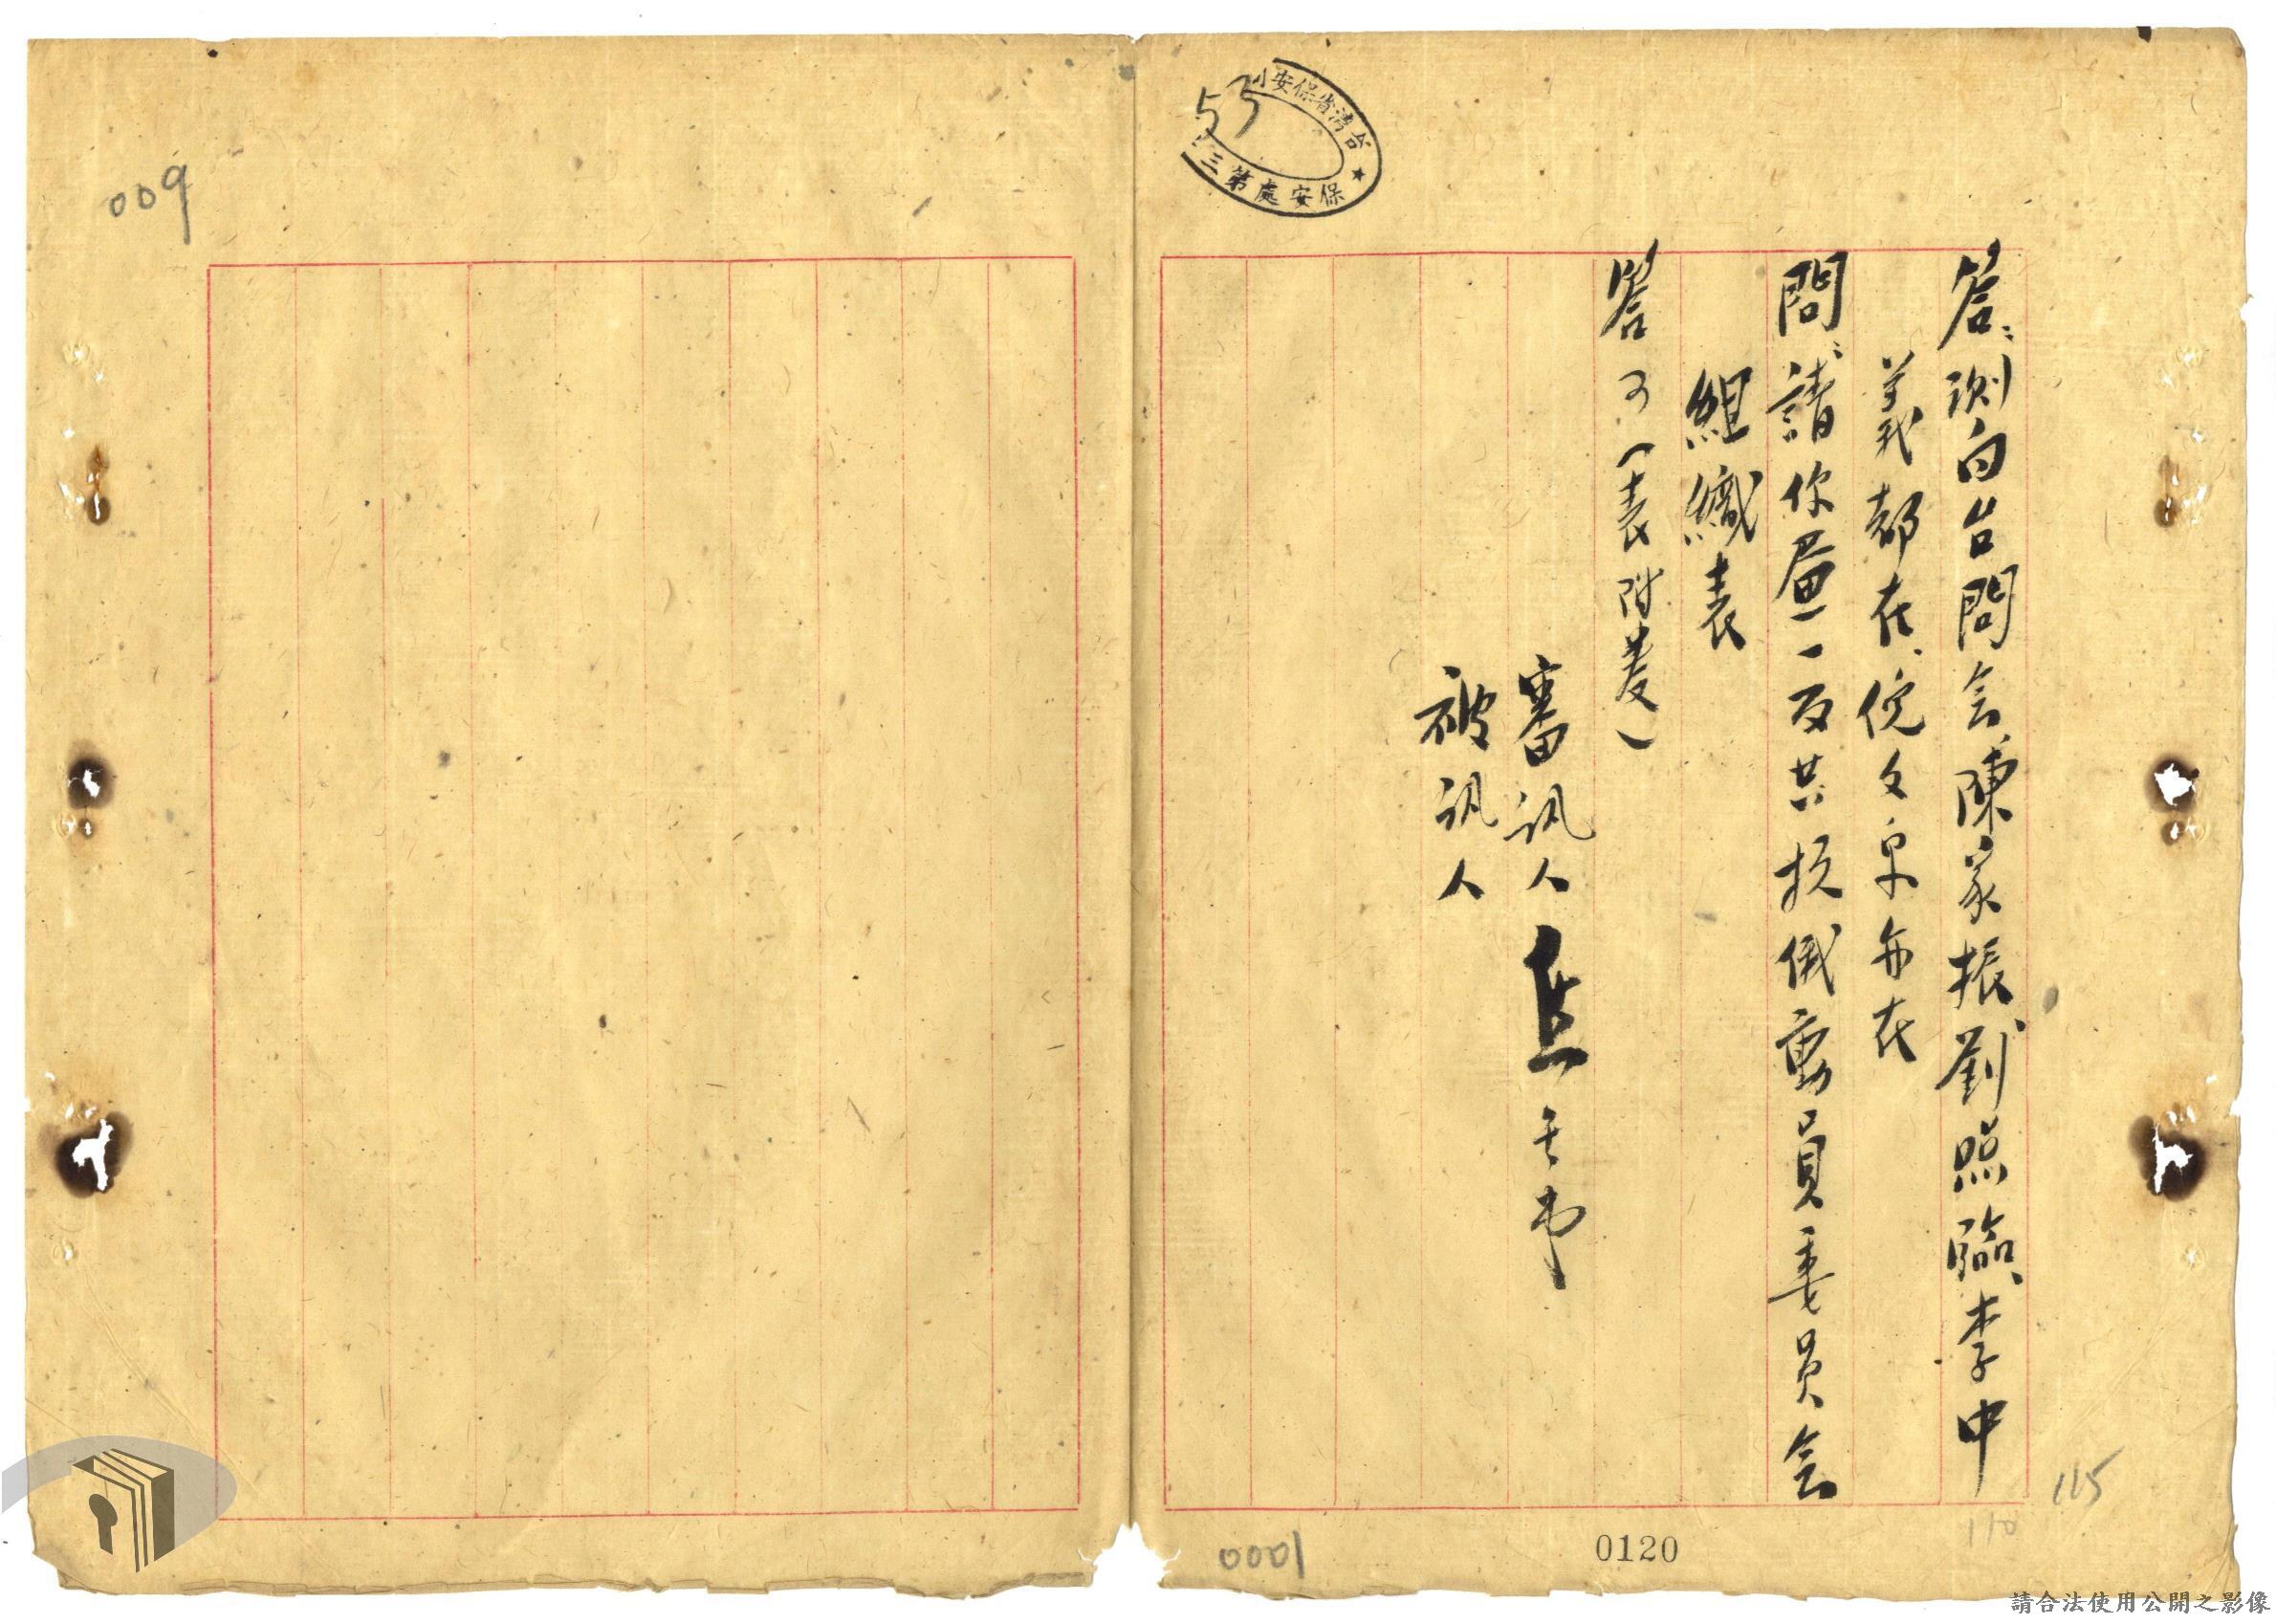 009
55
台灣省保安司
保安處第三
答：測向台問会、陳家振、劉照臨、李中
義都在、倪文泉亦在
問：請你畫一反共抗俄動員委員会
組織表
答 可（表附卷）
審訊人
被訊人
115
110
0001
0120
請合法使用公開之影像